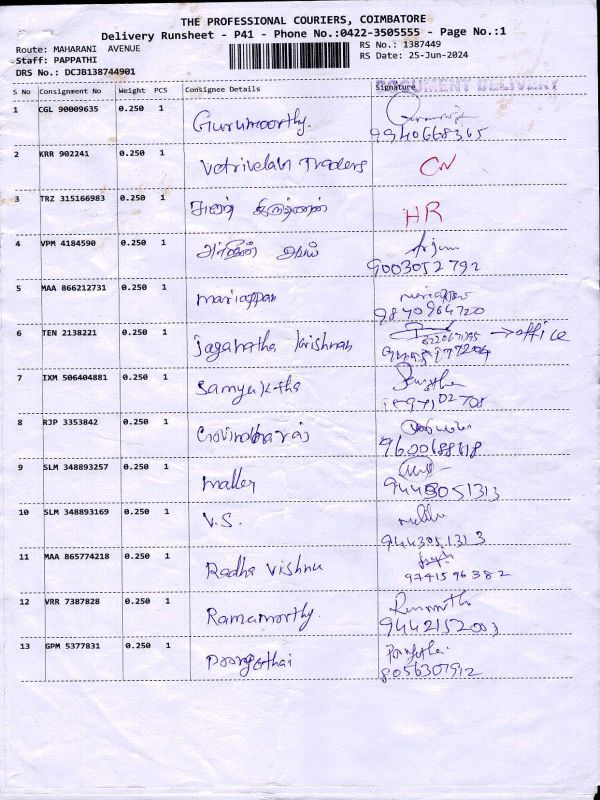 THE PROFESSIONAL COURIERS, COIMBATORE
Delivery Runsheet - P41 - Phone No.:0422-3505555 - Page No.:1
Route: MAHARANI AVENUE
RS No.: 1387449
Staff: PAPPATHI
RS Date: 25-Jun-2024
DRS No.: DCJB138744901
DOCUMENT DELIVERY
S No Consignment No Weight PCS Consignee Details Signature
1 CGL 90009635 0.250 1 Gurumoorthy.
9940668365
2 KRR 902241 0.250 1 Vetrivelan Traders CN
3 TRZ 315166983 0.250 1 HR
4 VPM 4184590 0.250 1 Arjun
9003052792
5 MAA 866212731 0.250 1 mariappan mariappan
9840964720
6 TEN 2138221 0.250 1 Jaganatha krishnan → office
7 IXM 506404881 0.250 1 Samyuktha
8 RJP 3353842 0.250 1 Govindharaj
9600688618
9 SLM 348893257 0.250 1 maller
9443051313
10 SLM 348893169 0.250 1 V.S.
9443051313
11 MAA 865774218 0.250 1 Radha Vishnu
9741596382
12 VRR 7387828 0.250 1 Ramamorthy.
9442152003
13 GPM 5377831 0.250 1 Poongothai
8056307912